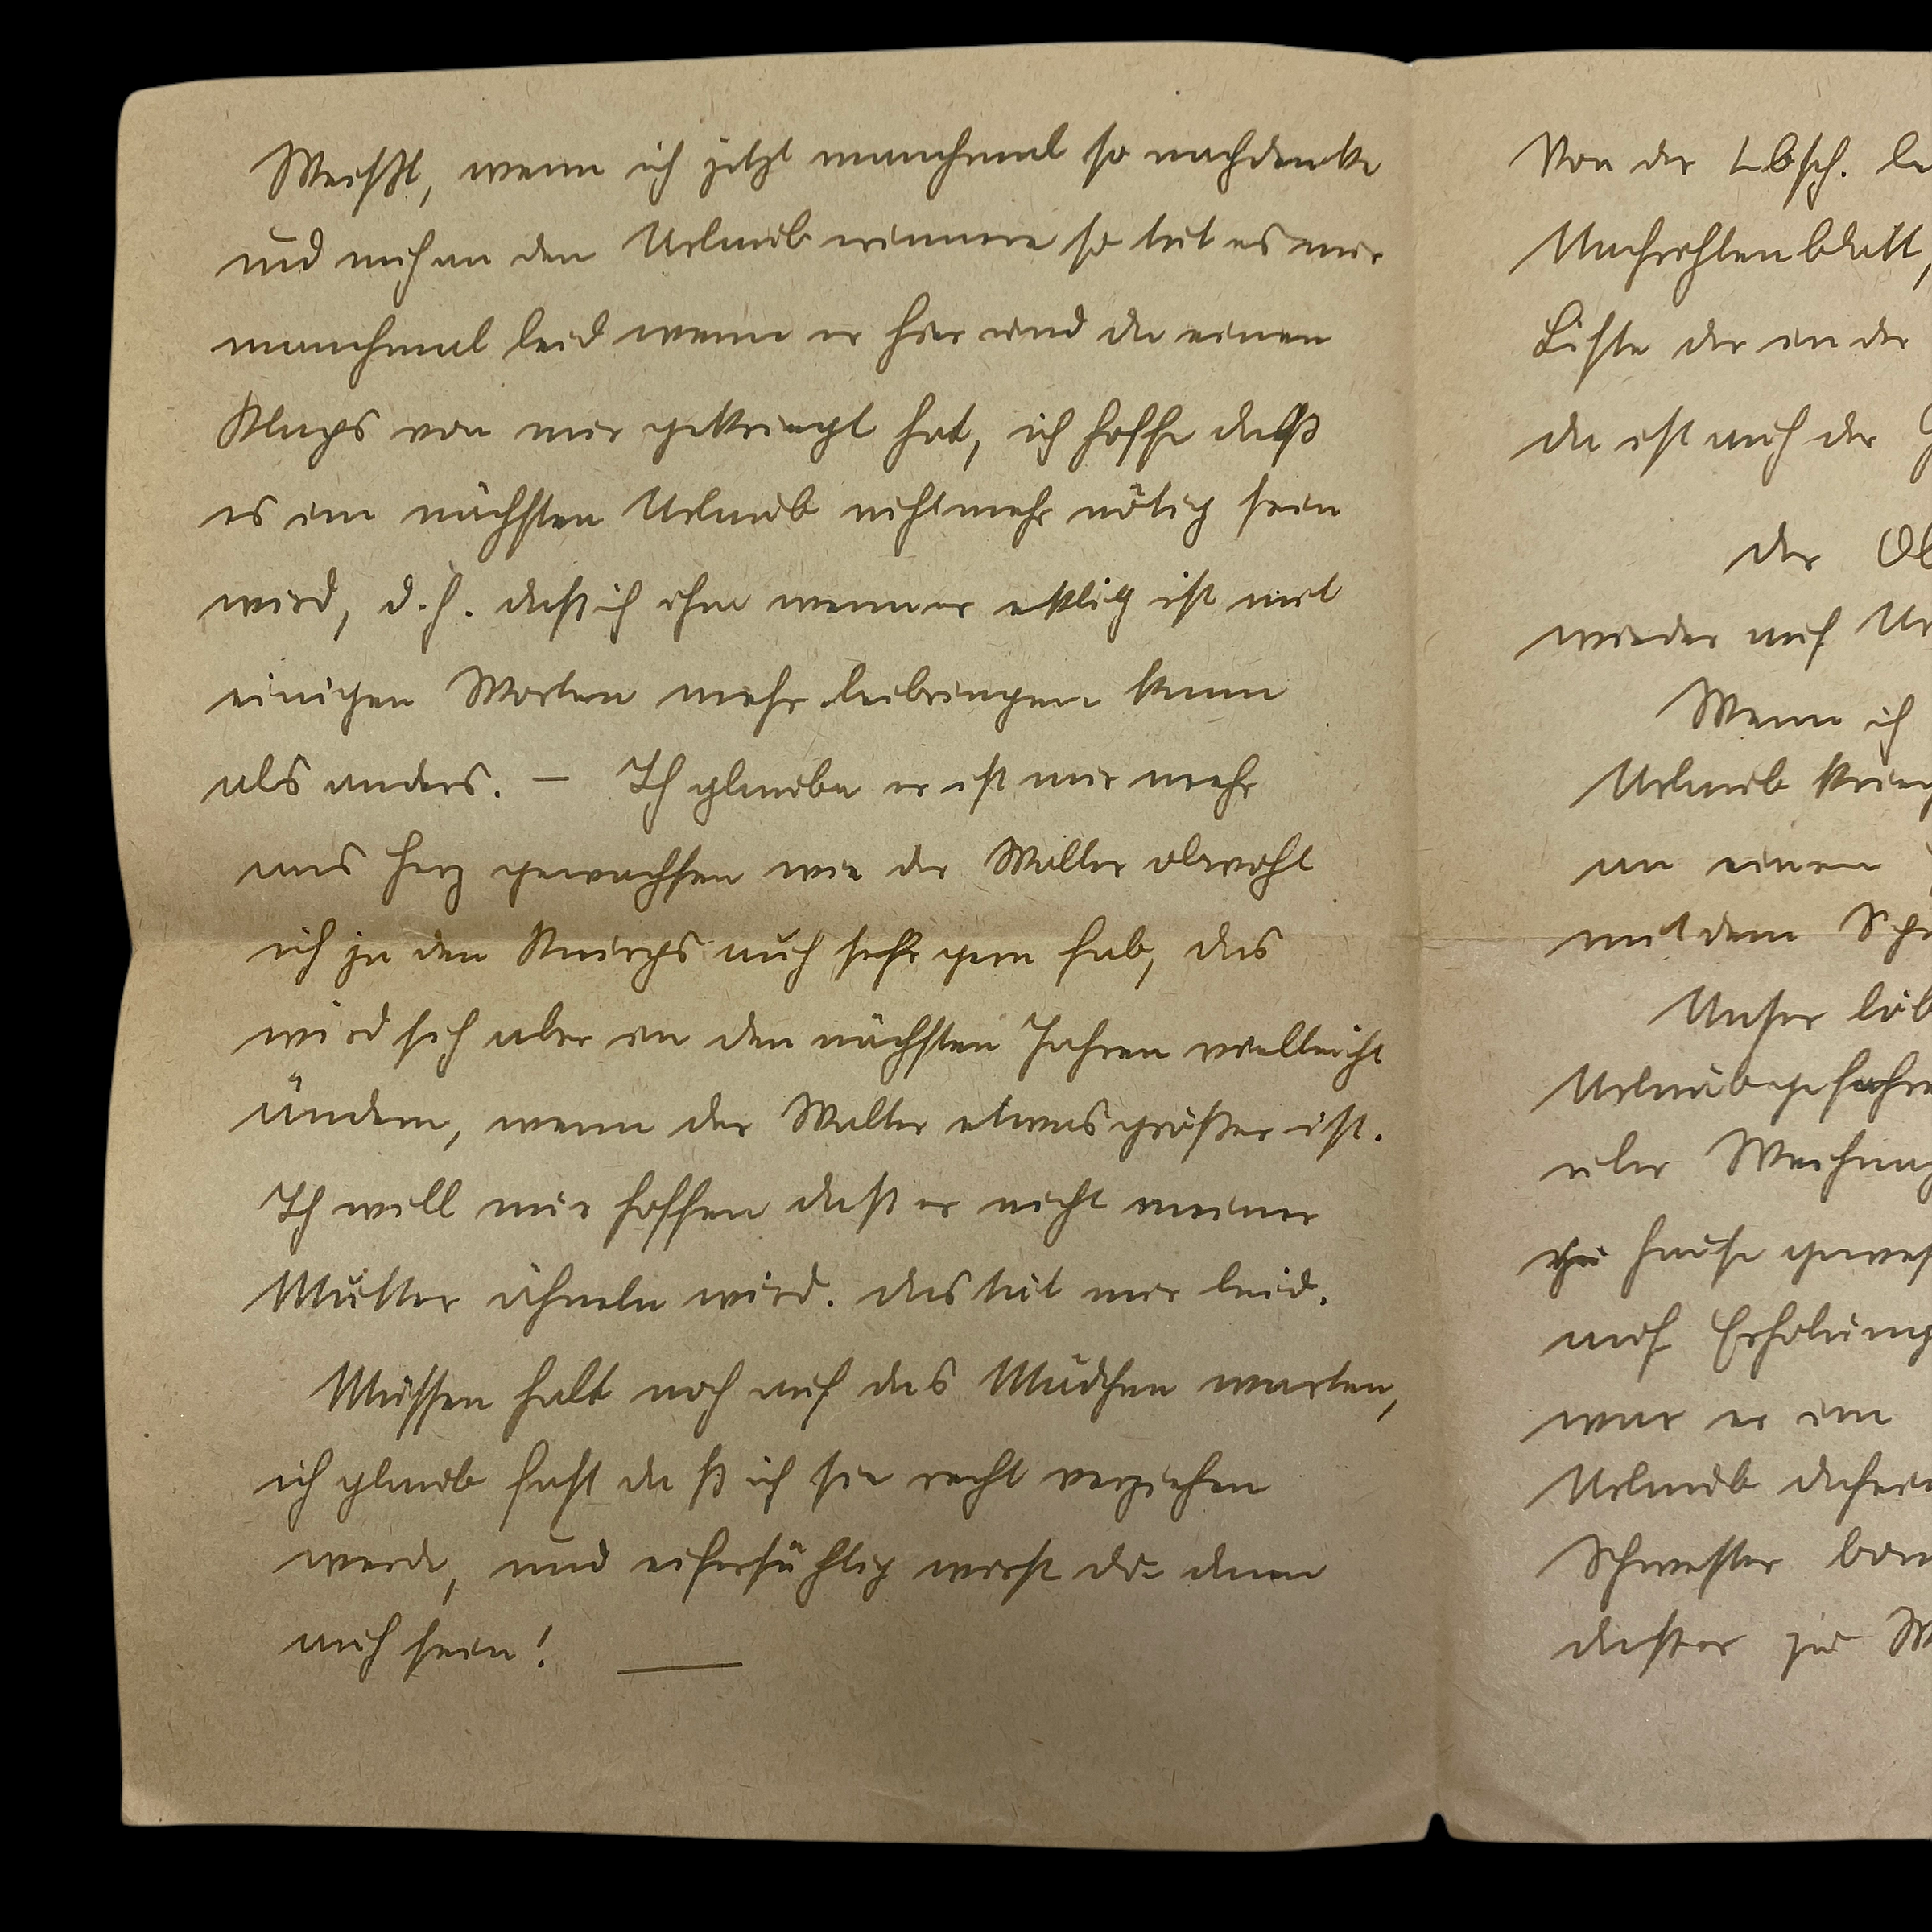 Weißt, wenn ich jetzt manchmal so nachdenke
und mich an den Urlaub erinnere so tut es mir
manchmal leid wenn er hier und da einen
Klaps von mir gekriegt hat, ich hoffe daß
es im nächsten Urlaub nicht mehr nötig sein
wird, d.h. daß ich ihm wenn er eklig ist mit
einigen Worten mehr beibringen kann
als anders. — Ich glaube er ist mir mehr
ans Herz gewachsen wie der Walter obwohl
ich ja den Knirps auch sehr gern hab, das
wird sich aber in den nächsten Jahren vielleicht
ändern, wenn der Walter etwas größer ist.
Ich will nur hoffen daß er nicht meiner
Mutter ähneln wird. das tät mir leid.
Müssen halt noch auf das Mädchen warten,
ich glaub fast daß ich sie recht verziehen
werde, und eifersüchtig wirst du dann
auch sein! —
Von der
Nachrichtenblatt,
Liste der in der
da ist auch der
der
wieder auf
Wenn ich
Urlaub
an einen
mit dem
Unser
über
zu Hause
auf
war er im
Urlaub
Schwester
daß er zu